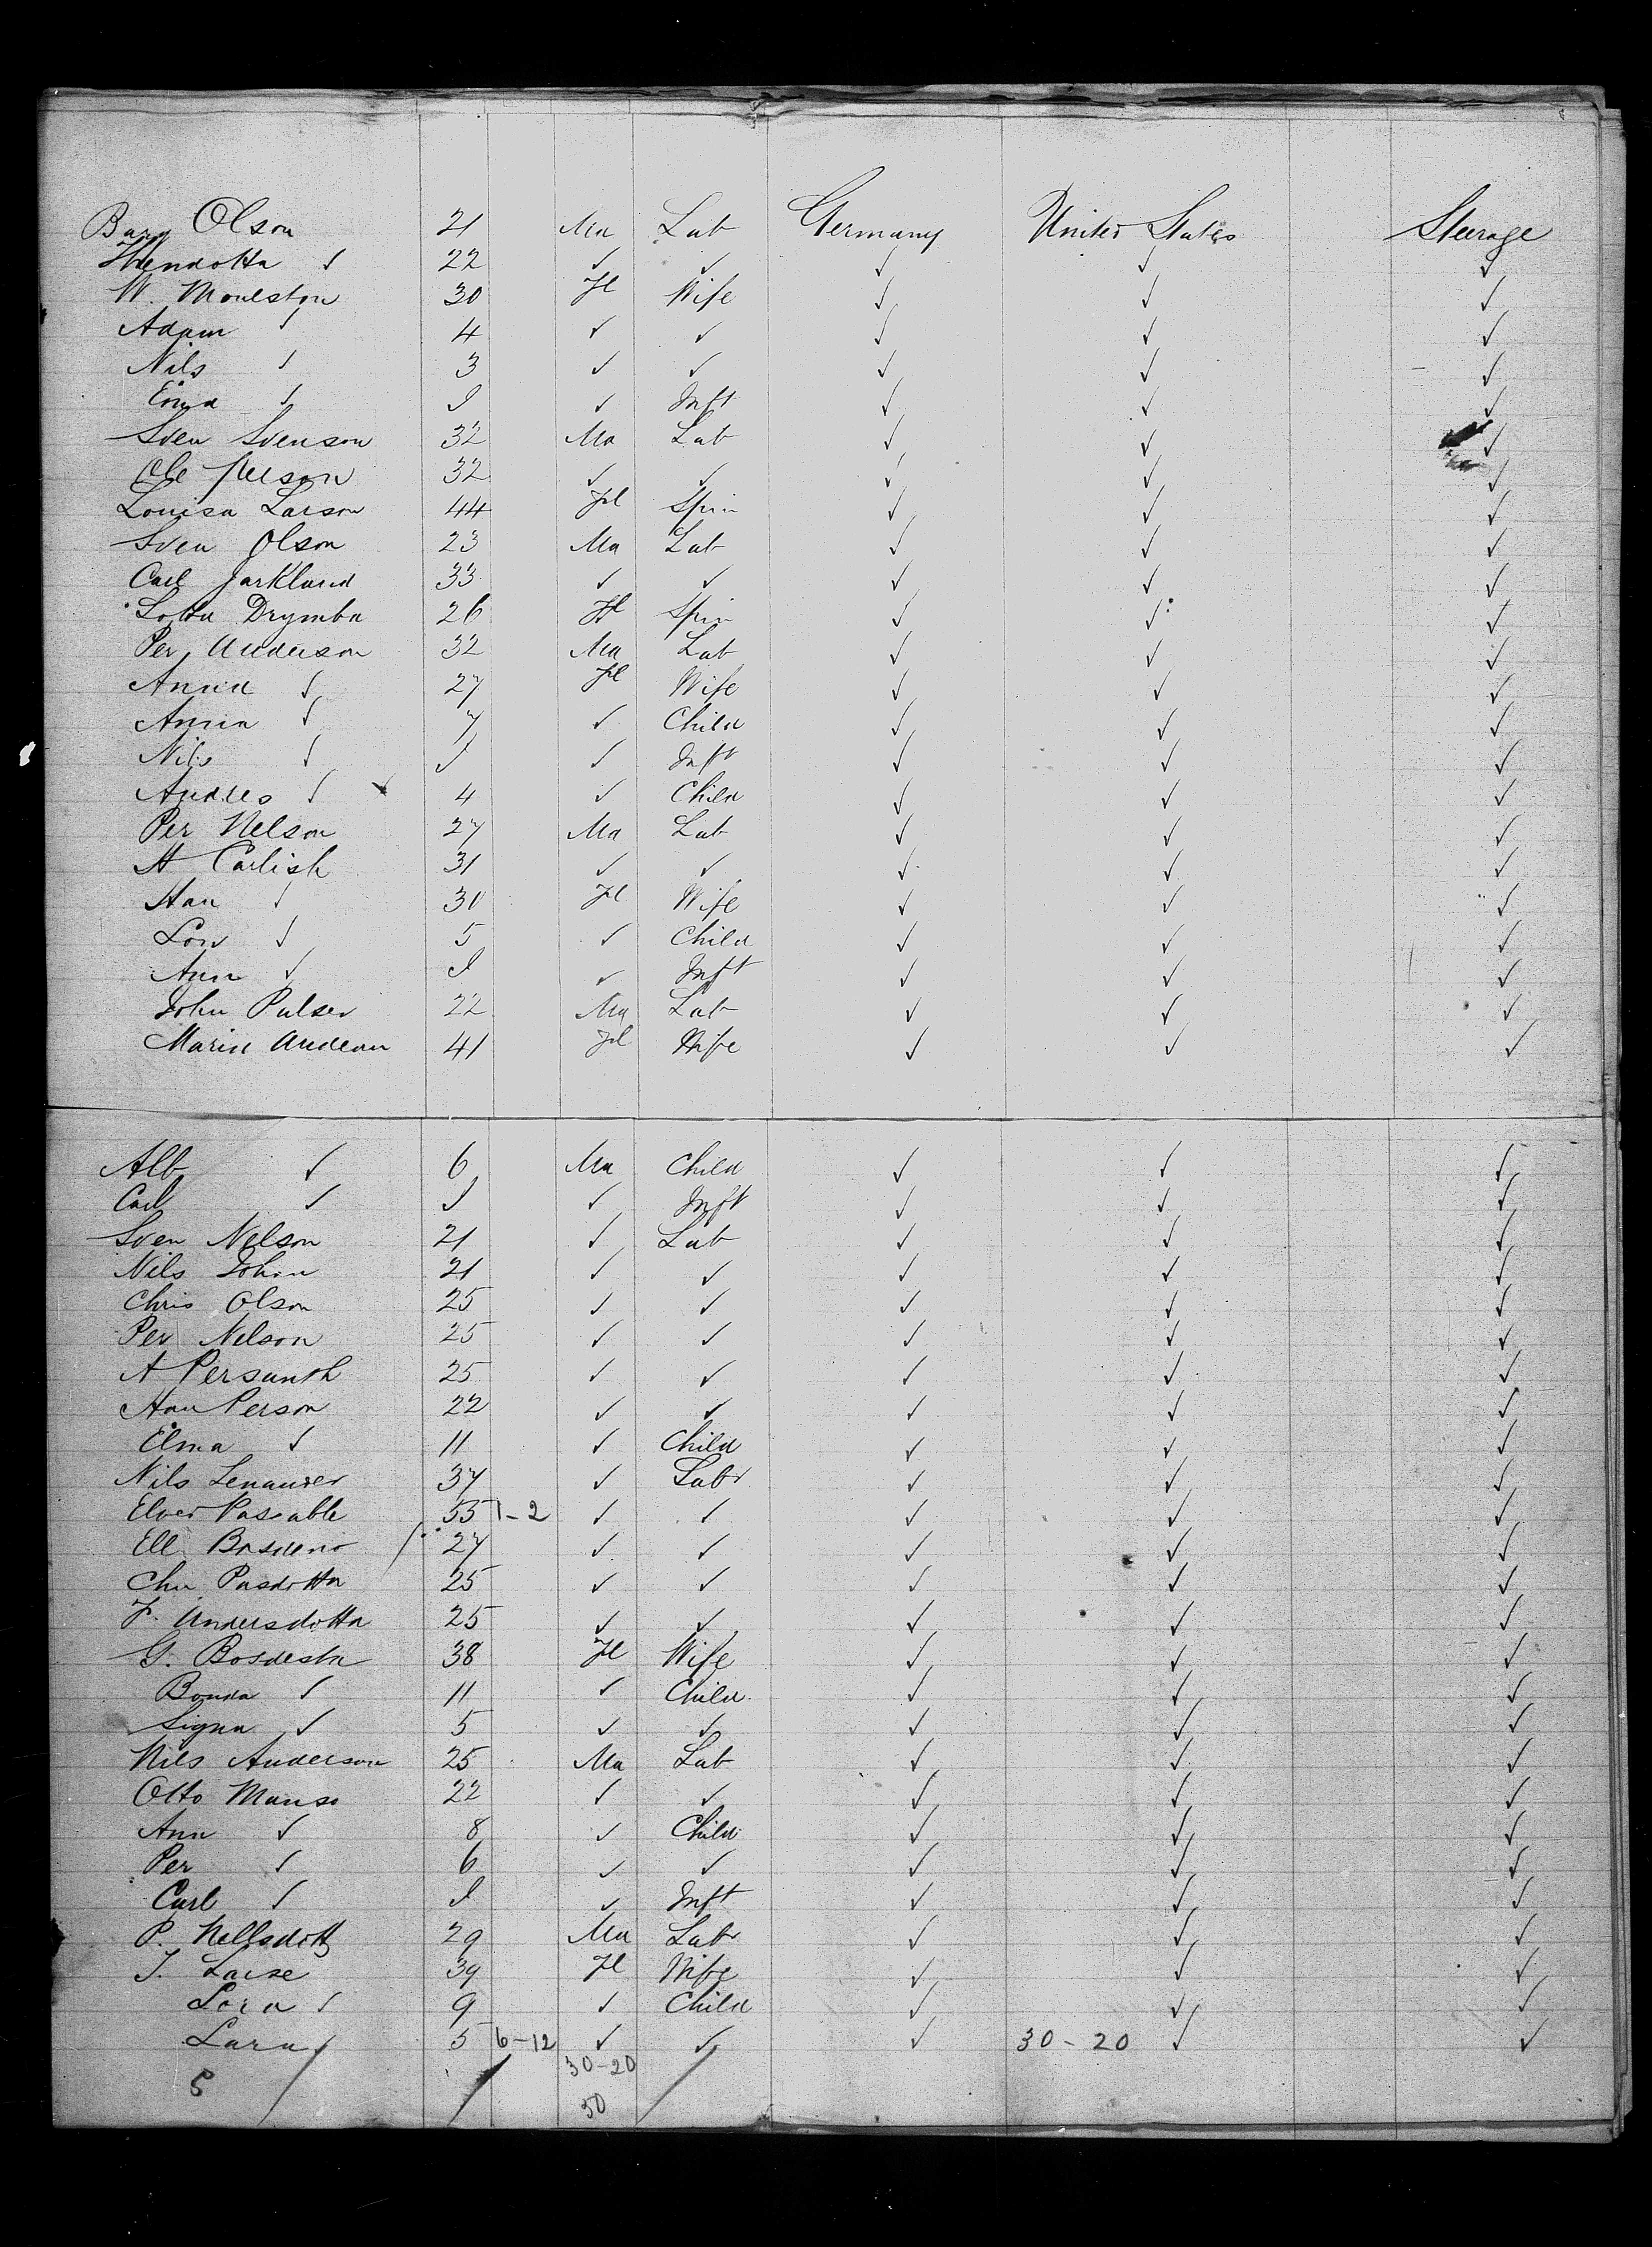 Olson 21 Ma Lab Germany United States Steerage
22 ✓ ✓ ✓ ✓ ✓
W. 30 Fl Wife ✓ ✓ ✓
Adam ✓ 4 ✓ ✓ ✓ ✓ ✓
Nils ✓ 3 ✓ ✓ ✓ ✓ ✓
✓ I ✓ Inft ✓ ✓ ✓
Sven Svenson 32 Ma Lab ✓ ✓ ✓
Ole Person 32 ✓ ✓ ✓ ✓ ✓
Louisa Larson 44 Fl Spin ✓ ✓ ✓
Sven Olson 23 Ma Lab ✓ ✓ ✓
Carl Jarkland 33 ✓ ✓ ✓ ✓ ✓
Lotta Drymba 26 Fl Spin ✓ ✓ ✓
Per Anderson 32 Ma Lab ✓ ✓ ✓
Anna ✓ 27 Fl Wife ✓ ✓ ✓
Anna ✓ 7 ✓ Child ✓ ✓ ✓
Nils ✓ I ✓ Inft ✓ ✓ ✓
Andres ✓ 4 ✓ Child ✓ ✓ ✓
Per Nelson 27 Ma Lab ✓ ✓ ✓
A Carlish 31 ✓ ✓ ✓ ✓ ✓
Han ✓ 30 Fl Wife ✓ ✓ ✓
✓ 5 ✓ Child ✓ ✓ ✓
Ann ✓ I ✓ Inft ✓ ✓ ✓
John Pulser 22 Ma Lab ✓ ✓ ✓
Maria 41 Fl Wife ✓ ✓ ✓
Alb ✓ 6 Ma Child ✓ ✓ ✓
Carl ✓ I ✓ Inft ✓ ✓ ✓
Sven Nelson 21 ✓ Lab ✓ ✓ ✓
Nils John 21 ✓ ✓ ✓ ✓ ✓
Chris Olson 25 ✓ ✓ ✓ ✓ ✓
Per Nelson 25 ✓ ✓ ✓ ✓ ✓
A 25 ✓ ✓ ✓ ✓ ✓
Han Person 22 ✓ ✓ ✓ ✓ ✓
Elma ✓ 11 ✓ Child ✓ ✓ ✓
Nils Lenander 37 ✓ Labr ✓ ✓ ✓
Pasable 55 1-2 ✓ ✓ ✓ ✓ ✓
27 ✓ ✓ ✓ ✓ ✓
Pasdotta 25 ✓ ✓ ✓ ✓ ✓
F. Andersdotta 25 ✓ ✓ ✓ ✓ ✓
G. 38 Fl Wife ✓ ✓ ✓
Bonda ✓ 11 ✓ Child ✓ ✓ ✓
Signa ✓ 5 ✓ ✓ ✓ ✓ ✓
Nils Anderson 25 Ma Lab ✓ ✓ ✓
Otto Manso 22 ✓ ✓ ✓ ✓ ✓
Ann ✓ 8 ✓ Child ✓ ✓ ✓
Per ✓ 6 ✓ ✓ ✓ ✓ ✓
Carl ✓ I ✓ Inft ✓ ✓ ✓
P. Nellsdott 29 Ma Labr ✓ ✓ ✓
39 Fl Wife ✓ ✓ ✓
Lora ✓ 9 ✓ Child ✓ ✓ ✓
Lara ✓ 5 6-12 ✓ ✓ ✓ 30-20 ✓ ✓
5 30-20
50